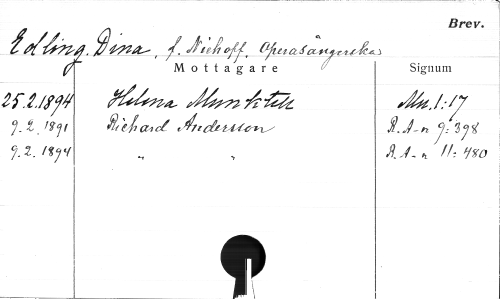 Brev.
Edling, Dina, f. Niehoff, Operasångerska
Mottagare Signum
25.2.1894 Helena Munktell Mu. 1:17
9.2.1891 Richard Andersson R.A-n 9:398
9.2.1894 " " R.A-n 11:480